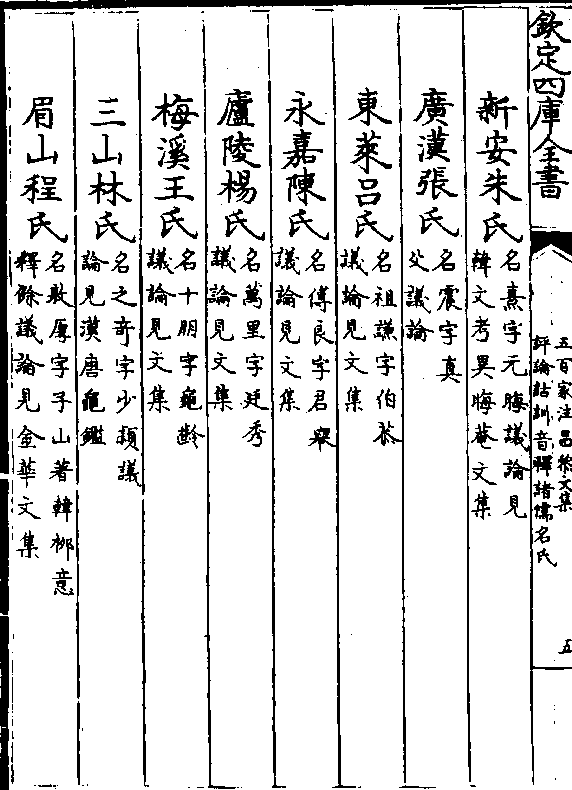 欽定四庫全書
五百家注昌黎文集
評論詁訓音釋諸儒名氏
五
新安朱氏
名熹字元晦議論見
韓文考異晦菴文集
廣漢張氏
名震字真
父議論
東萊吕氏
名祖謙字伯恭
議論見文集
永嘉陳氏
名傅良字君舉
議論見文集
廬陵楊氏
名萬里字廷秀
議論見文集
梅溪王氏
名十朋字龜齡
議論見文集
三山林氏
名之奇字少穎議
論見漢唐龜鑑
眉山程氏
名敦厚字子山著韓柳意
釋餘議論見金華文集